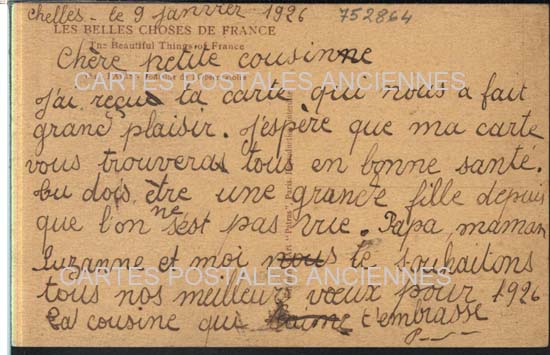 Chelles - le 9 janvier 1926 752864
LES BELLES CHOSES DE FRANCE
The Beautiful Things of France
Chère petite cousine
CARTES POSTALES ANCIENNES
J'ai reçu ta carte qui nous a fait
grand plaisir. J'espère que ma carte
vous trouvera tous en bonne santé.
tu dois être une grande fille depuis
que l'on ne s'est pas vue. Papa, maman
Suzanne et moi nous te souhaitons
CARTES POSTALES ANCIENNES
tous nos meilleurs vœux pour 1926
Ta cousine qui t'embrasse